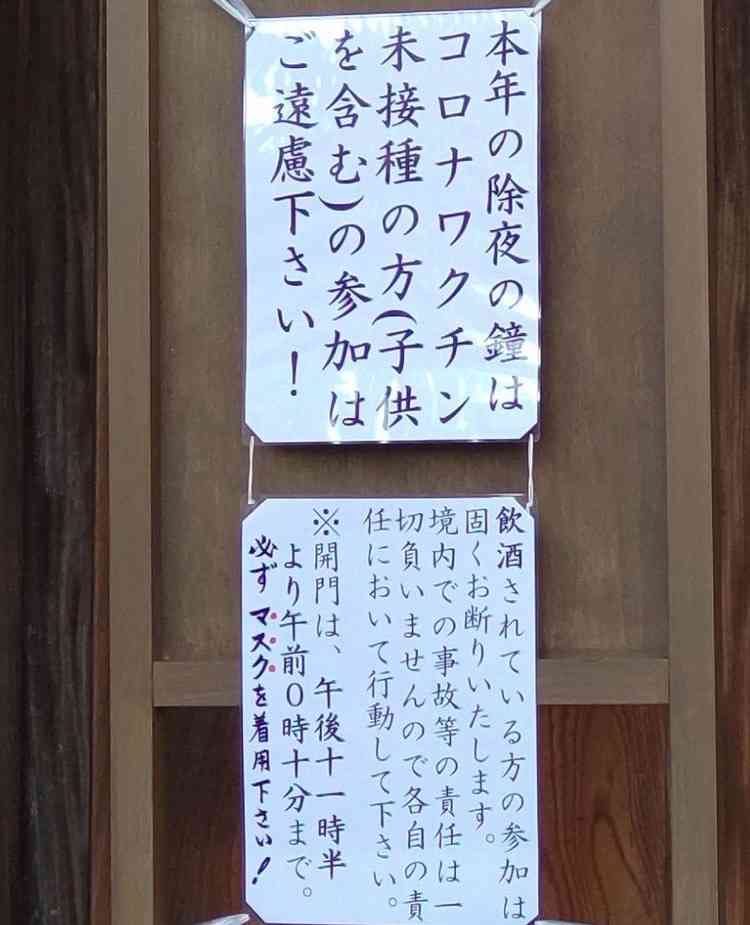 本年の除夜の鐘は
コロナワクチン
未接種の方(子供
を含む)の参加は
ご遠慮下さい!
飲酒されている方の参加は
固くお断りいたします。
境内での事故等の責任は一
切負いませんので各自の責
任において行動して下さい。
※開門は、午後十一時半
より午前0時十分まで。
必ずマスクを着用下さい!